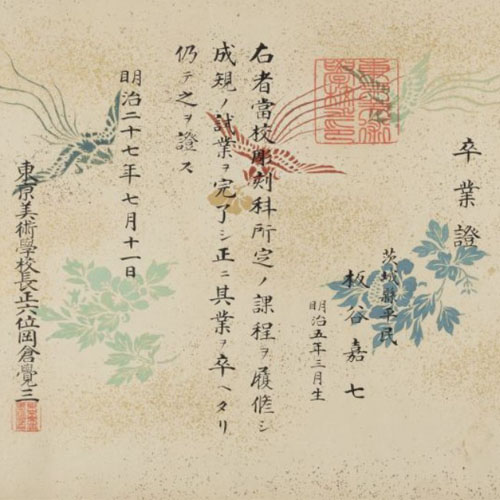 卒業證
茨城縣平民
板谷嘉七
明治五年三月生
右者當校彫刻科所定ノ課程ヲ履修シ
成規ノ試業ヲ完了シ正ニ其業ヲ卒ヘタリ
仍テ之ヲ證ス
明治二十七年七月十一日
東京美術學校長正六位岡倉覺三